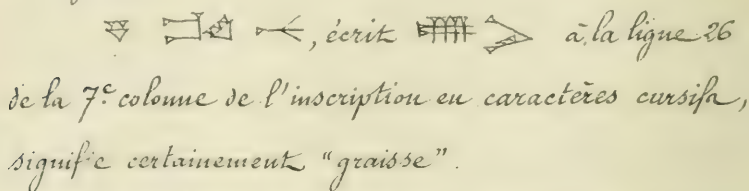 , écrit à la ligne 26
de la 7.e colonne de l'inscription en caractères cursifs,
signifie certainement "graisse".